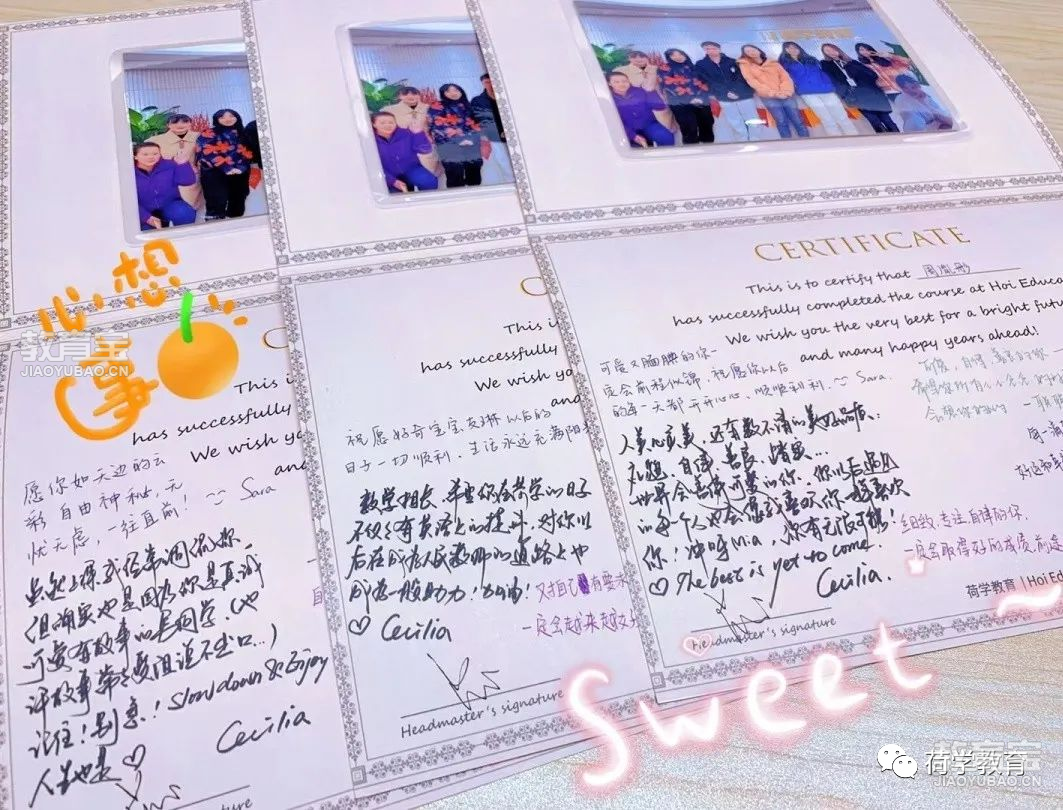 心想
事
教育宝
JIAOYUBAO.CN
This i
has successfully
We wish yo
an
愿你如天边的云
彩 自由神秘,无
忧无虑,一往直前!
Sara
虽然上课我经常调侃你
但确实也是因为你是真诚
可爱有故事的
同学.
讲故事
Slow down & Enjoy
记住!别急!
人生也是♡
Cecilia
C
This i
has successfully
We wish
and
祝愿好奇宝宝
以后的
日子一切顺利、生活永远充满阳
教学相长,希望你在荷学的日子
不仅仅有英语上的提升,对你以
后在成为人民教师的道路上也
成为一股助力!加油!
♡ Cecilia
有要求
一定会越来越好
Headmaster's signature
CERTIFICATE
This is to certify that
has successfully completed the course at Hoi Educa
We wish you the very best for a bright futu
and many happy years ahead!
可爱又腼腆的你一
定会前程似锦,祝愿你以后
的每一天都开开心心、顺顺利利
Sara.
人美心更美,还有数不清的美好品质:
礼貌、自律、善良、踏实...
世界会善待可爱的你.你以后遇见
的每一个人也会
喜欢你
你!冲呀Mia,你有无限可能!
♡ The best is yet to come.
Cecilia.
细致,专注自律的你,
一定会取得好的成绩,前途
荷学教育 | Hoi Edu
Headmaster's signature
Sweet
荷学教育
JIAOYUBAO.CN